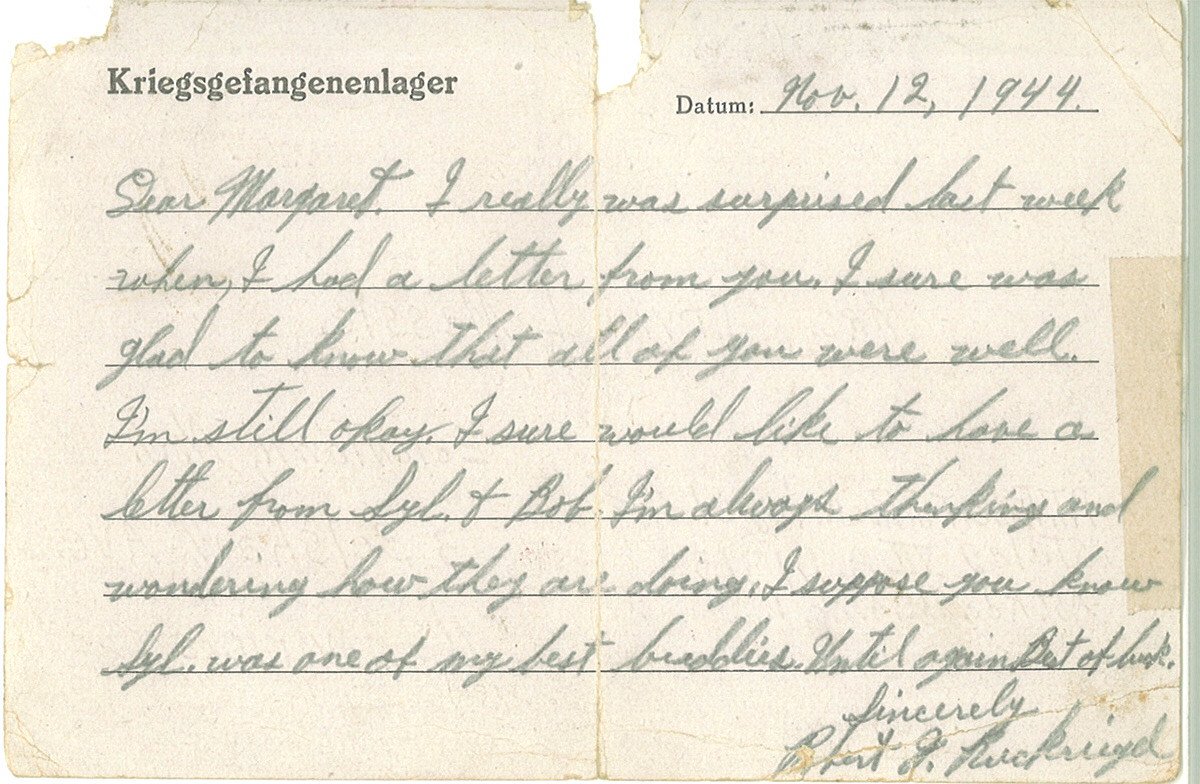 Kriegsgefangenenlager
Datum: Nov. 12, 1944.
Dear Margaret. I really was surprised last week
when, I had a letter from you. I sure was
glad to know that all of you were well.
I'm still okay. I sure would like to have a
letter from Syl. & Bob. I'm always thinking and
wondering how they are doing. I suppose you know
Syl. was one of my best buddies. Until again Best of luck.
Sincerely
J.